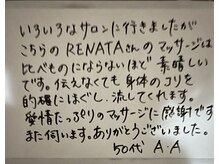 いろいろなサロンに行きましたが
こちらのRENATAさんのマッサージは
比べものにならないほど素晴しい
です。伝えなくても身体のコリを
的確にほぐし、流してくれます。
愛情たっぷりのマッサージに感謝です
また伺います。ありがとうございました。
50代 A・A